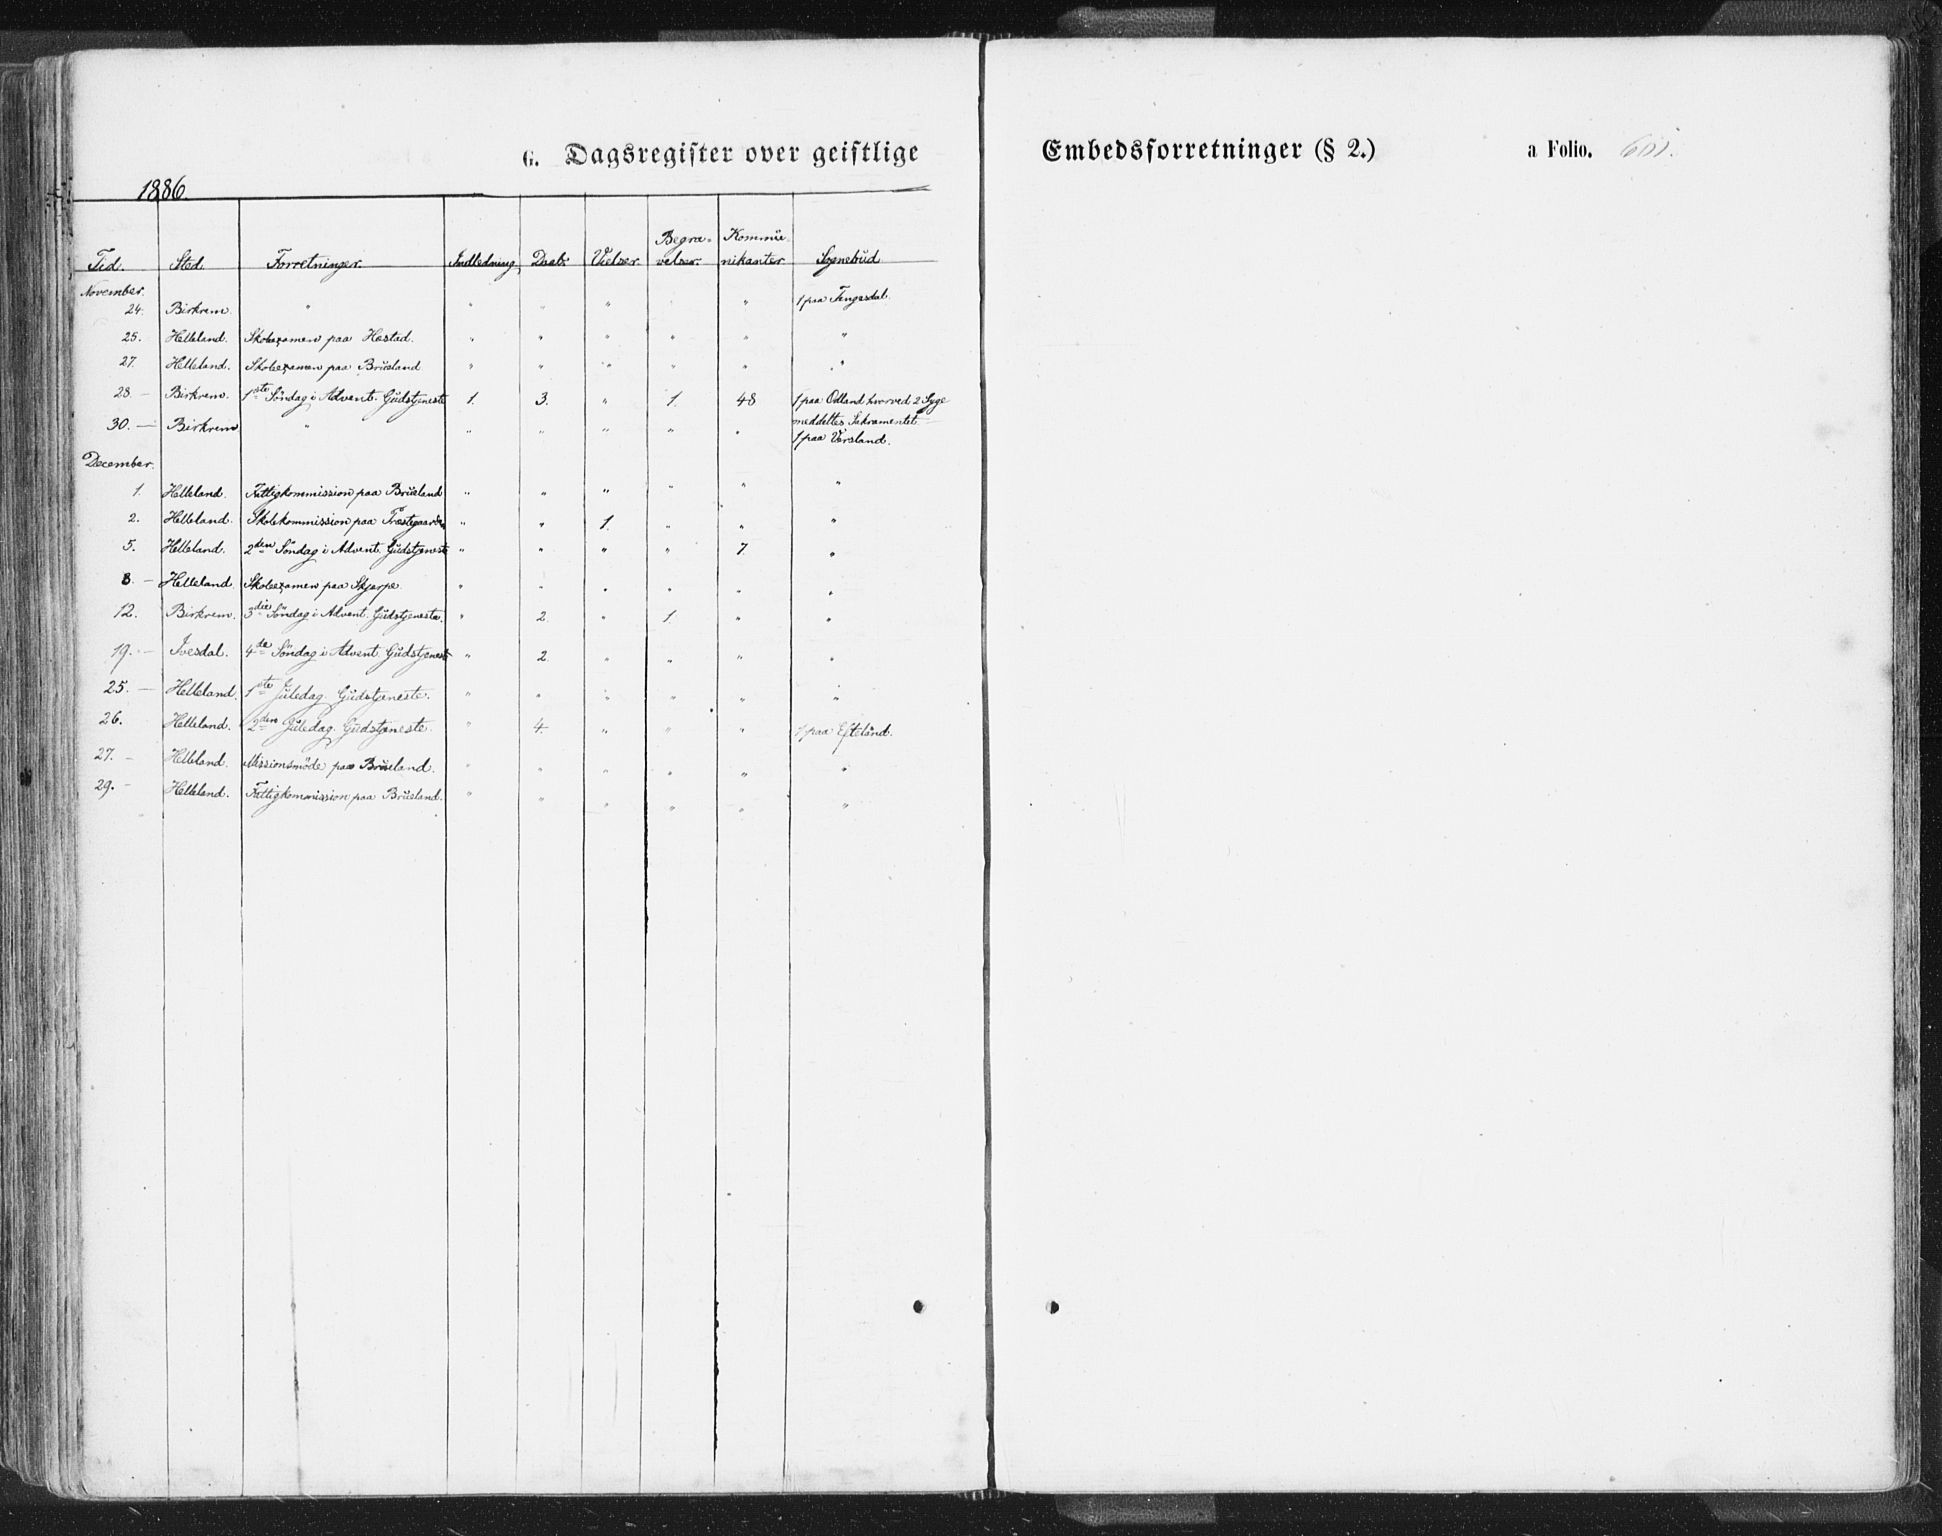 G. Dagsregister over geistlige Embedsforretninger (§ 2.) a Folio. 601.
1886.
Begra= Kommü=
Tid. Sted. Forretninger. Indledning Daab. Vielser. velser. nikanter Sognebüd
November.
24. Birkrem. " " " " " 1 paa Tengesdal.
25. Helleland. Skoleexamen paa Hæstad. " " " " " "
27. Helleland. Skoleexamen paa Brüsland " " " " " "
28. — Birkrem. 1ste Söndag i Advent. Güdstjeneste 1. 3. " 1. 48 1 paa Ödland hvorved 2 Syge
meddeltes Sakramentet
30. — Birkrem " " " " " " 1 paa Versland.
December.
1. Helleland. Fattigkommission paa Brüsland " " " " " "
2. Helleland. Skolekommission paa Præstegaarden " " 1. " " "
5. Helleland. 2den Söndag i Advent. Güdstjeneste " " " " 7. "
8. — Helleland. Skoleexamen paa Skjerpe. " " " " " "
12. Birkrem. 3die Söndag i Advent. Güdstjeneste. " 2. " 1. " "
19. — Ivesdal. 4de Söndag i Advent. Güdstjeneste " 2. " " " "
25. — Helleland. 1ste Jüledag. Güdstjeneste. " " " " " "
26. Helleland. 2den Jüledag. Güdstjeneste. " 4. " " " 1 paa Efteland.
27. — Helleland. Missionsmöde paa Brüsland. " " " " " "
29. — Helleland. Fattigkommission paa Brüsland. " " " " " "